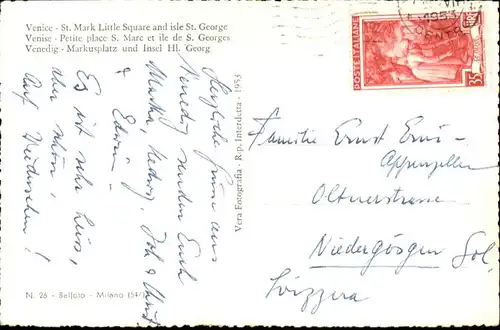 Venice - St. Mark Little Square and isle St. George
Venise - Petite place S. Marc et ile de S. Georges
Venedig - Markusplatz und Insel Hl. Georg
Herzliche Grüsse aus
Venedig senden Euch
Martha, Hedwig, Joh &
& Edwin
Es ist sehr heiss,
aber schön.
Auf Wiedersehen!
N. 26 - Belfoto - Milano
Vera Fotografia - Rip. Interdetta - 1953
POSTE ITALIANE
35
1953
Familie Ernst Erni-
Appenzeller
Oltnerstrasse
Niedergösgen Sol.
Svizzera